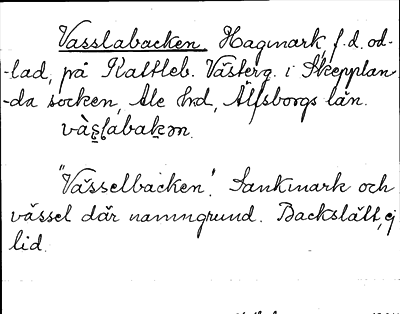 Vasslabacken. Hagmark, f.d. od-
-lad, på Kattleb. Västerg. i Skepplan-
-da socken, Ale hrd, Älfsborgs län.
"Vässelbacken". Sankmark och
vässel där namngrund. Backslätt, ej
lid.